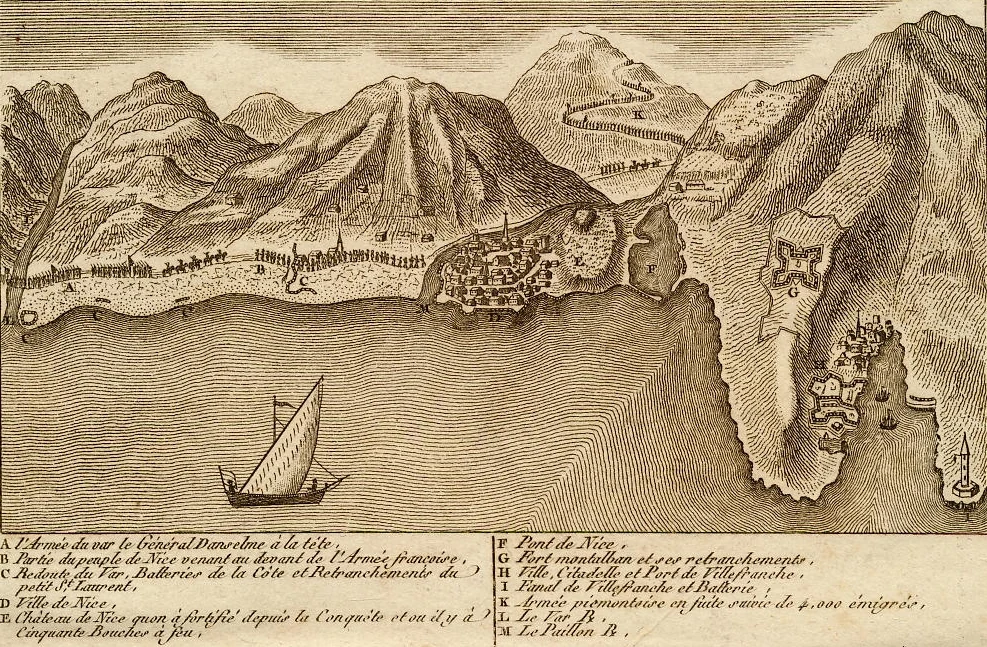 K
L
E
B
A
C
F
G
L
C
C
M
D
H
I
A l'Armée du var le Général Danselme à la tête,
B Partie du peuple de Nice venant au devant de l'Armée françoise,
C Redoute du Var, Batteries de la Côte et Retranchements du
petit St. Laurent,
D Ville de Nice,
E Château de Nice quon à fortifié depuis la Conquète et ou il y à
Cinquante Bouches à feu,
F Pont de Nice,
G Fort montalban et ses retranchements,
H Ville, Citadelle et Port de Villefranche,
I Fanal de Villefranche et Batterie,
K Armée piémontoise en fuite suivie de 4,000 émigrés,
L Le Var R.
M Le Paillon R.,